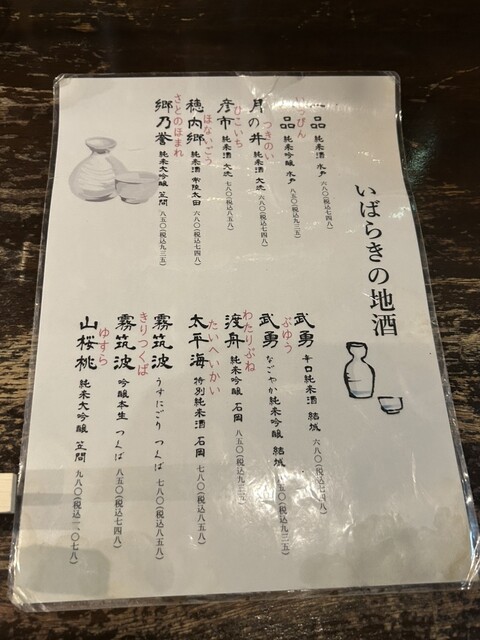 いばらきの地酒
一品 純米酒 水戸 六八〇(税込七四八)
いっぴん
一品 純米吟醸 水戸 八五〇(税込九三五)
つきのい
月の井 純米酒 大洗 六八〇(税込七四八)
ひこいち
彦市 純米酒 大洗 七八〇(税込八五八)
ほないごう
穂内郷 純米酒 常陸太田 六八〇(税込七四八)
さとのほまれ
郷乃誉 純米大吟醸 笠間 八五〇(税込九三五)
武勇 辛口純米酒 結城 六八〇(税込七四八)
ぶゆう
武勇 なごやか純米吟醸 結城 八五〇(税込九三五)
わたりぶね
渡舟 純米吟醸 石岡 八五〇(税込九三五)
たいへいかい
太平海 特別純米酒 石岡 七八〇(税込八五八)
霧筑波 うすにごり つくば 七八〇(税込八五八)
きりつくば
霧筑波 吟醸本生 つくば 八五〇(税込七四八)
ゆすら
山桜桃 純米大吟醸 笠間 九八〇(税込一、〇七八)